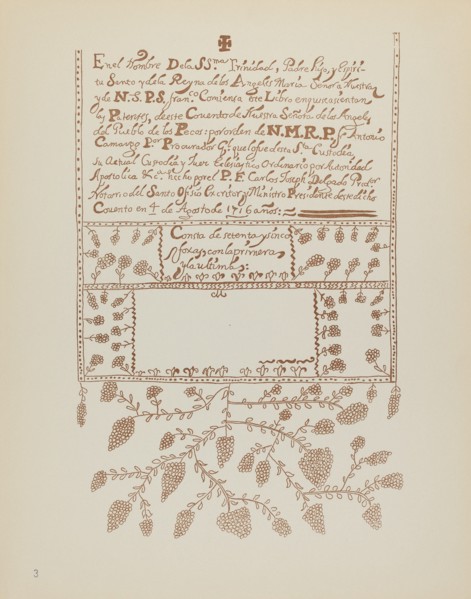 En el Nombre De la SS.ma Trinidad, Padre, Hijo, y Espiri-
tu Santo y de la Reyna de los Angeles Maria Señora Nuestra
y de N.S.P.S. Fran.co Comiensa este Libro en qui se asientan
las Patentes, de este Convento de Nuestra Señora de los Angeles
del Pueblo de los Pecos: por orden de N.M.R.P. Fr. Antonio
Camargo Por Procurador G.l que fue desta S.ta Custodia,
su Actual Custodio y Juez Eclesiastico Ordinario por Autoridad
Apostolica &c.a hecho por el P. F. Carlos Joseph Delgado
Notario del Santo Ofisio Escritor y Ministro Presidente deste dicho
Convento en 4 de Agosto de 1716 años:
Consta de setenta y sinco
foxas, con la primera,
y la ultima:
3